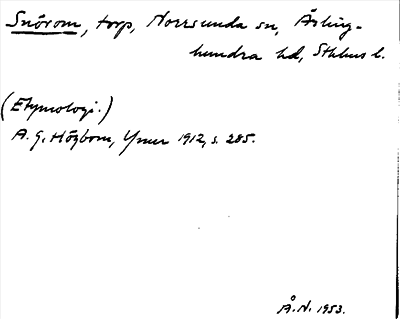 Snörom, torp, Norrsunda sn, Ärling-
hundra hd, Sthlms l.
(Etymologi.)
A. G. Högbom, Ymer 1912, s. 285.
Å. N. 1953.